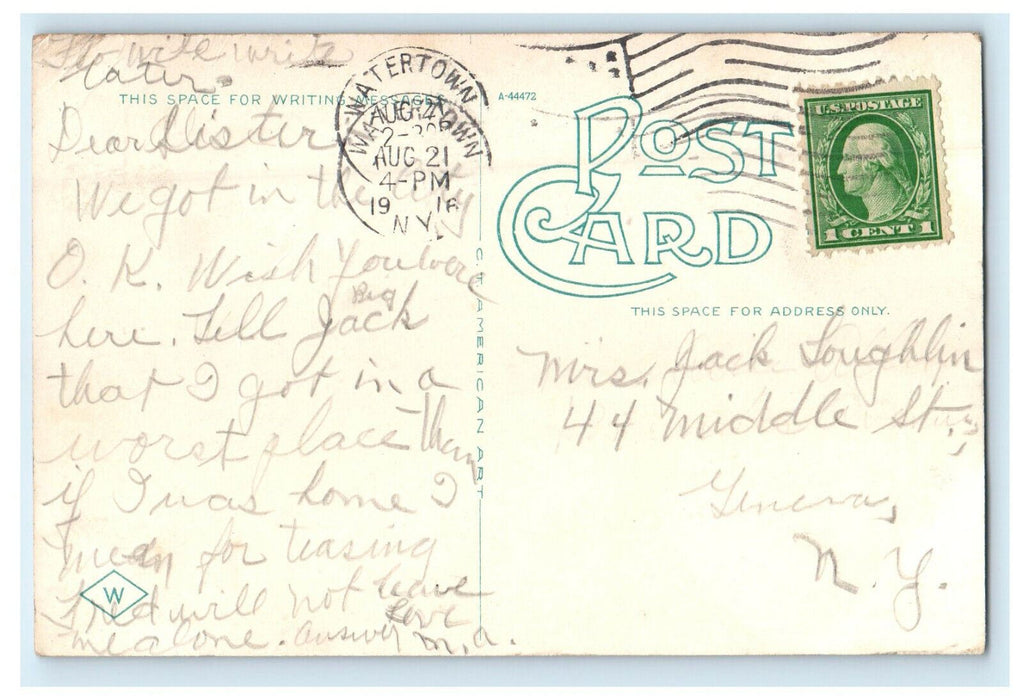 Flo will write
later.
THIS SPACE FOR WRITING MESSAGES
A-44472
Dear Sister
We got in the City
O. K. Wish You were
here. Tell Big Jack
that I got in a
worst place than
if I was home I
mean for teasing
Fred will not leave
me alone. answer
Love
M. A.
WATERTOWN
AUG 21
2-30P
WATERTOWN
AUG 21
4-PM
19 16
N.Y.
C.T. AMERICAN ART
W
POST
CARD
U.S. POSTAGE
1 CENT 1
THIS SPACE FOR ADDRESS ONLY.
Mrs. Jack Loughlin
44 Middle St.,
Geneva,
N. Y.